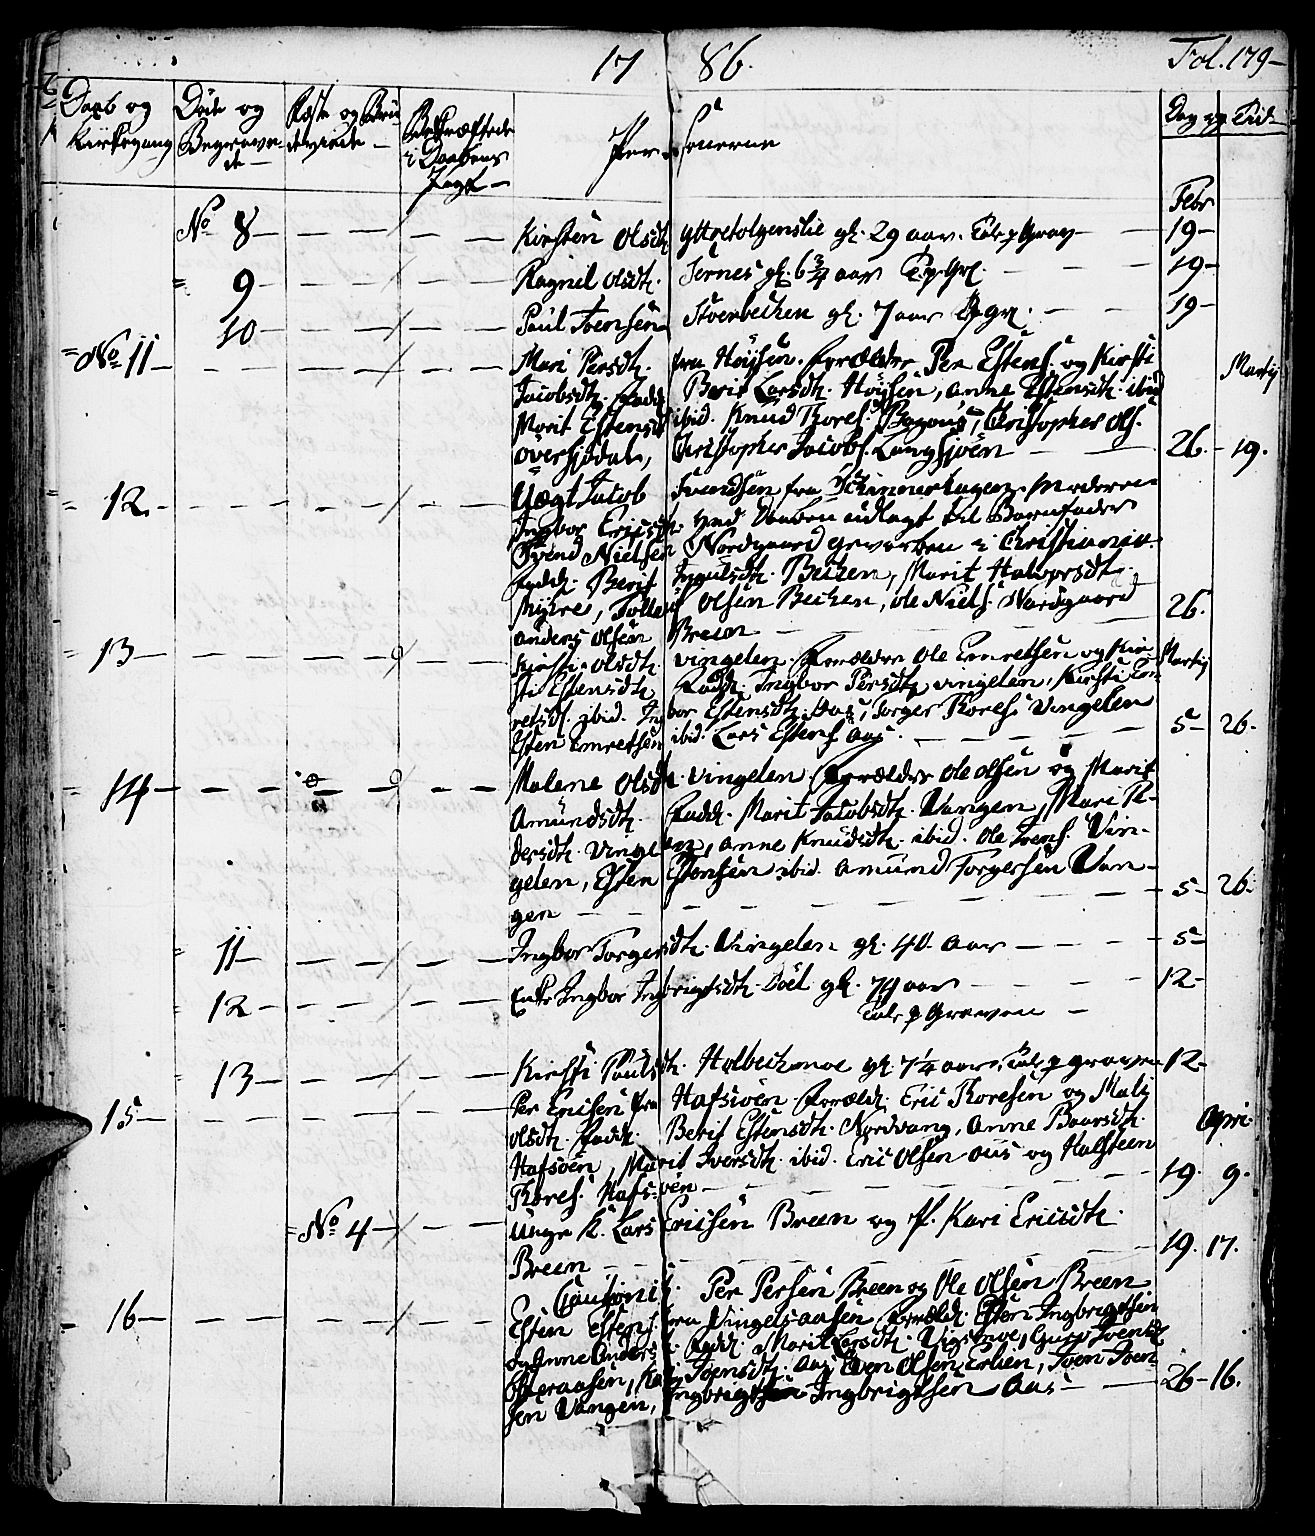 17 86. Fol. 179-
Daab og Kirkegang
Døde og Begravede
Fæste og
i Daabens Pagt
Personerne
Dag og Tid
Febr
No 8 Kirsten Olsdt. gl. 29 aar. 19-
9 Ragnil Olsdt. gl. 6¾ aar 19-
10 Paul Joensen Stoerbechen gl. 7 aar 19-
No 11 Mari Persdt. fra Høysen. Forældre Per Estens. og Kirsti Martij
Jacobsdt. Fadd. Berit Larsdt. Høysen, Anne Estensdt. ibid
Marit Estensdt ibid. Knud Thores. Christopher Ols.
Øversjødal, Christopher Jacobs. Langsjøen 26. 19.
12. Uægt Jacob Svendsen fra Moderen
Ingbor Ericsdt. ved Daaben udlagt til Barnfader
Svend Nielsen Nordgaard geworben i Christiania.
Fadd. Berit Becken, Marit Halvorsdt.
Myhre, Tollef Olsen Becken, Ole Niels. Nordgaard 26.
Anders Olsen Breen
13 Kirsti Olsdt. Vingelen. Forældre Ole Emretsen og Kir- Martij
sti Estensdt. Fadd. Ingbor Persdt. Vingelen, Kirsti Em-
retsdt. ibid. Ingbor Estensdt. Aas, Torger Thores. Vingelen
Esten Emretsen ibid. Lars Estens. Aas. 5- 26.
14 Malene Olsdt. Vingelen. Forældre Ole Olsen og Marit
Amundsdt. Fadd. Marit Jacobsdt. Vangen, Mari P-
dersdt. Vingelen, Anne Knudsdt. ibid. Ole Joens. Vin-
gelen, Esten Estensen ibid. Amund Torgersen Van-
gen 5- 26.
11 Ingbor Torgersdt. Vingelen gl. 40 aar 5-
12 Enke Ingbor Ingbrigtsdt. gl. 79 aar 12-
Graven
13 Kirsti Paulsdt. Holbechmoe gl. 7¼ aar, graven 12-
15 Per Ericsen fra Hafsøen. Foræld. Eric Thoresen og Mali
Olsdt. Fadd. Berit Estensdt. Nordvang, Anne Baarsdt. Apri.
Hafsøen, Marit Iversdt. ibid. Eric Olsen Aas og Halsteen
Thores. Hafsøen 19 9.
No 4 Unge K. Lars Ericsen Breen og P. Kari Ericsdt.
Breen 19. 17.
Cautionist. Per Persen Breen og Ole Olsen Breen
16 Esten Estens. fra Vingelsaasen Foræld. Esten Ingbrigtsen
og Anne Andersdt. Fadd. Marit Larsdt. Vigsmoe, Guro Joensdt.
Joensdt. Aas Even Olsen Erlien, Joen Joen-
sen Vangen, Ingbrigt Ingbrigtsen Aas 26- 16.